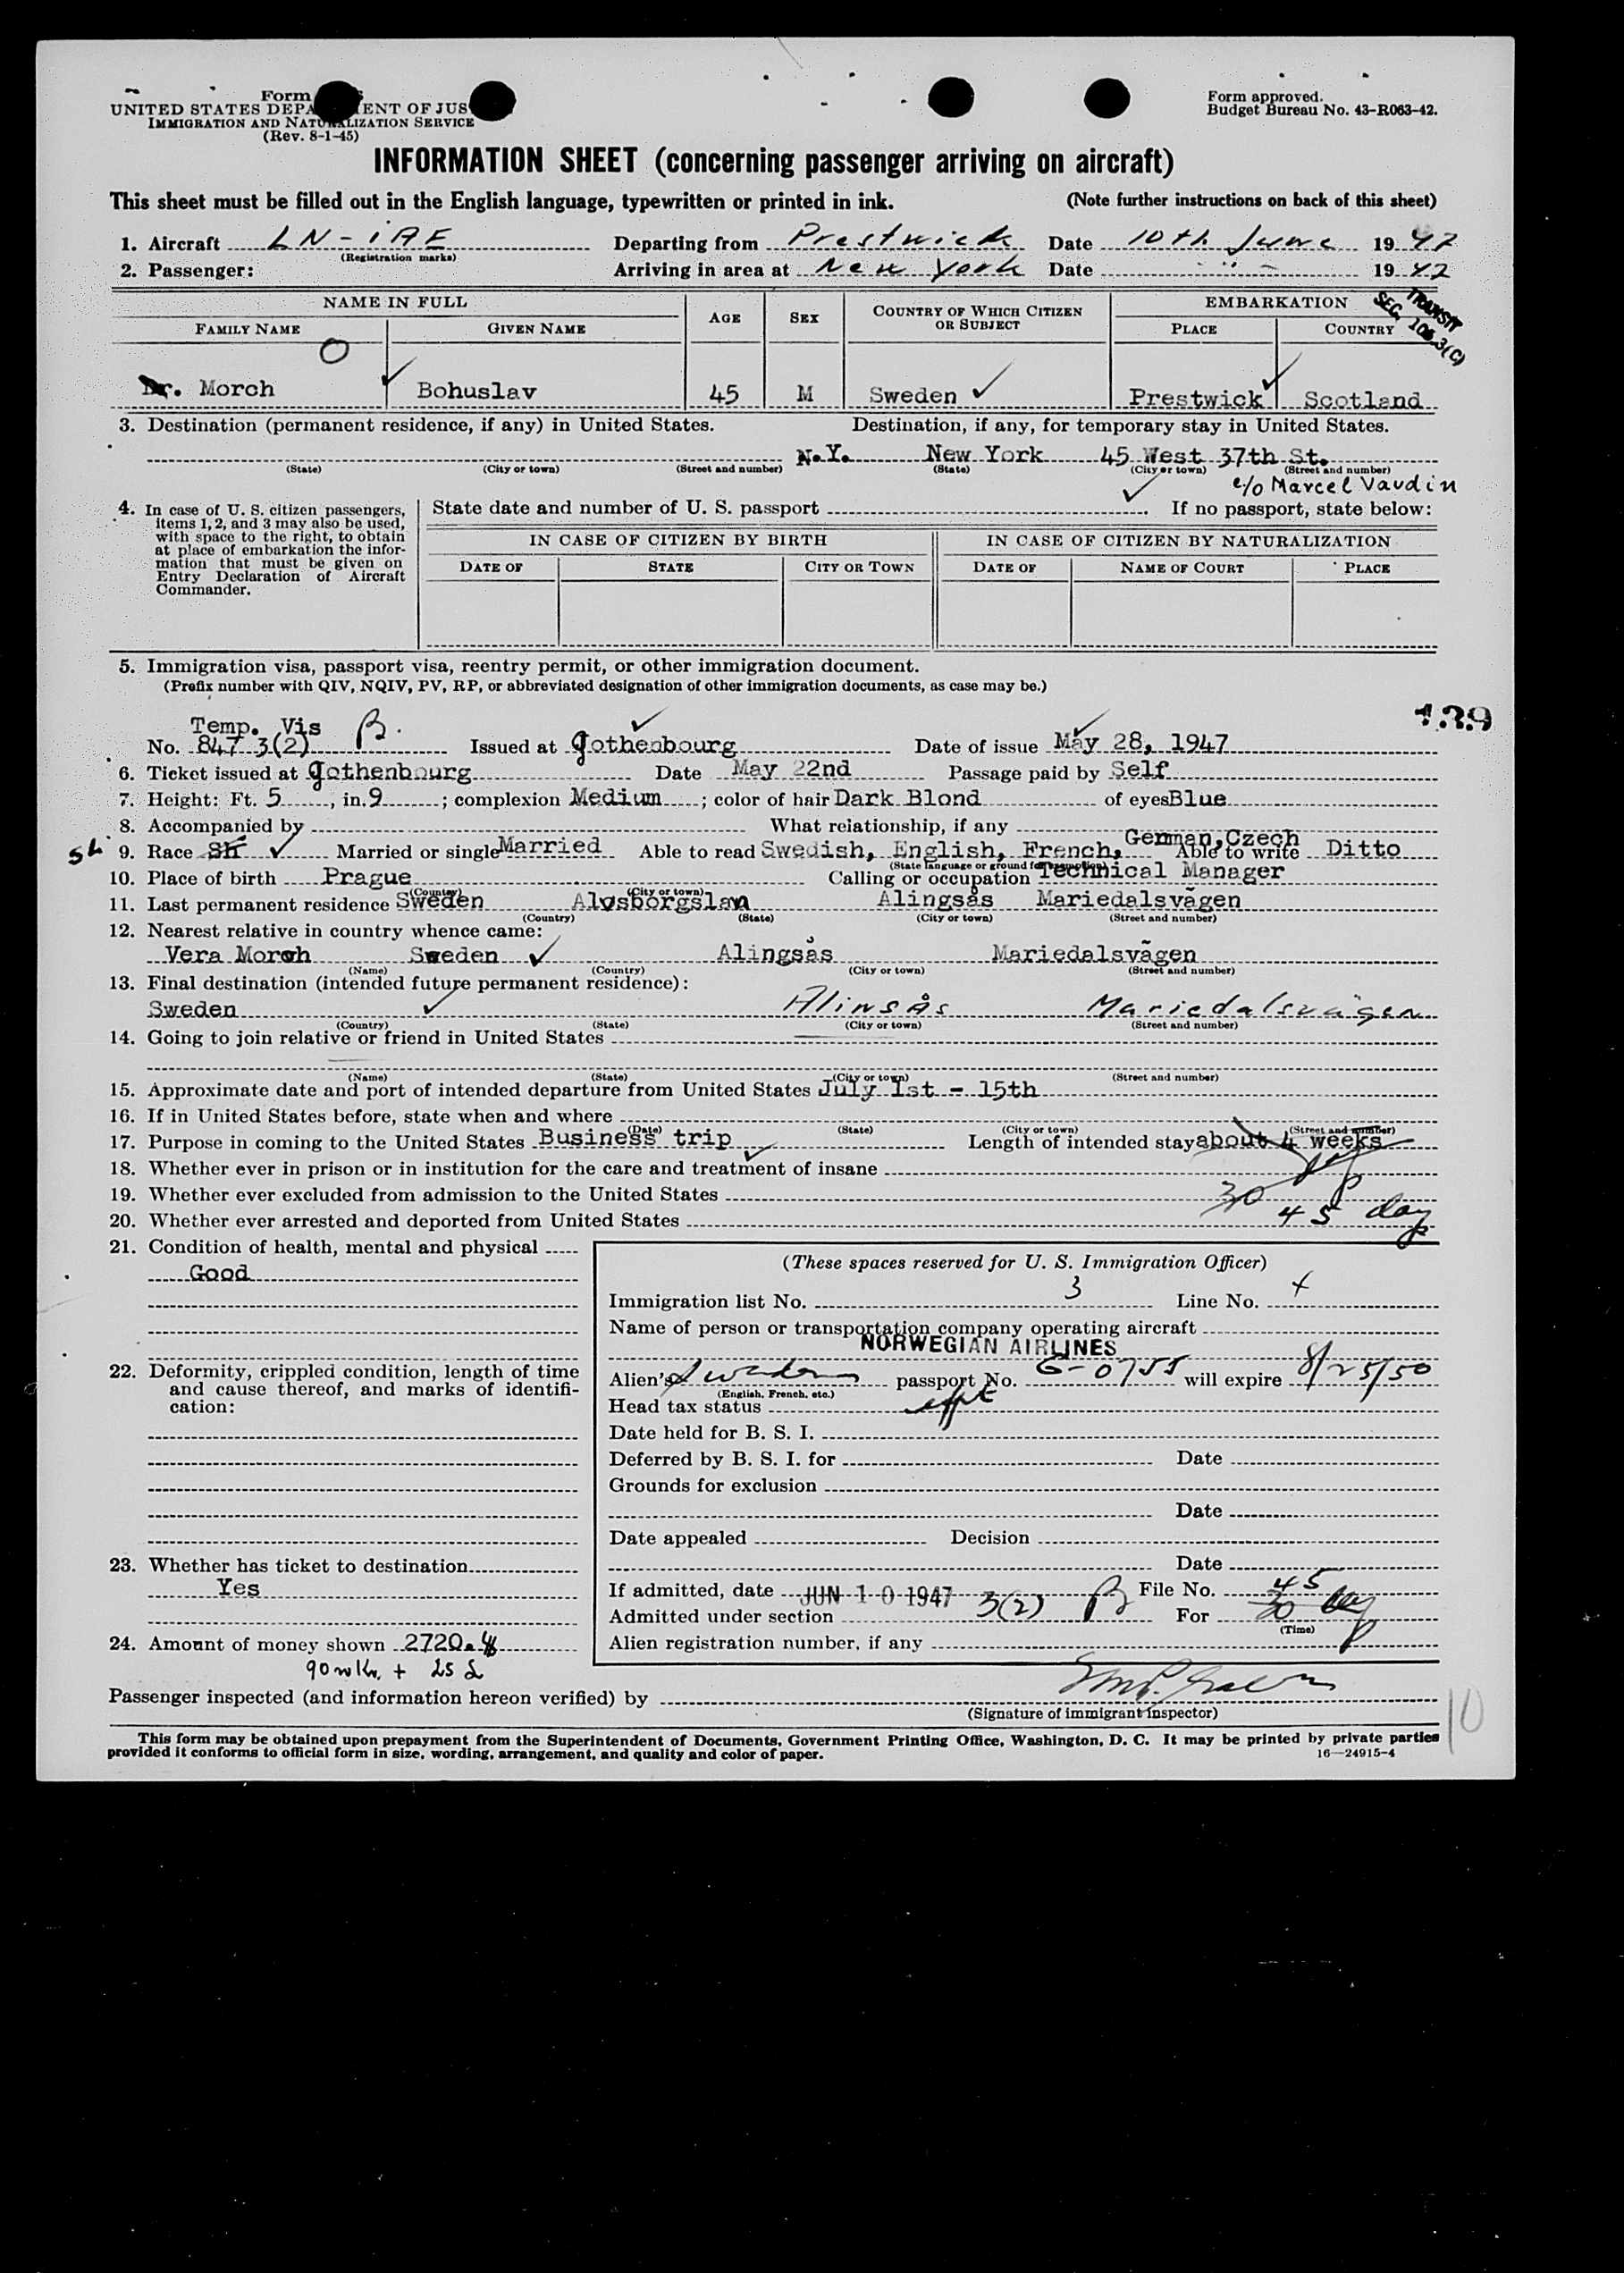 Form
UNITED STATES DEPA ENT OF JUS
IMMIGRATION AND NATURALIZATION SERVICE
(Rev. 8-1-45)
Form approved.
Budget Bureau No. 43-R063-42.
INFORMATION SHEET (concerning passenger arriving on aircraft)
This sheet must be filled out in the English language, typewritten or printed in ink. (Note further instructions on back of this sheet)
1. Aircraft LN-iAE Departing from Prestwick Date 10th June 1947
(Registration marks)
2. Passenger: Arriving in area at New York Date -"- 1947
NAME IN FULL AGE SEX COUNTRY OF WHICH CITIZEN OR SUBJECT EMBARKATION
FAMILY NAME GIVEN NAME PLACE COUNTRY
TRANSIT
SEC. 106.3(C)
O
Dr. Morch Bohuslav 45 M Sweden Prestwick Scotland
3. Destination (permanent residence, if any) in United States. Destination, if any, for temporary stay in United States.
N.Y. New York 45 West 37th St.
(State) (City or town) (Street and number) (State) (City or town) (Street and number)
c/o Marcel Vaudin
4. In case of U. S. citizen passengers, items 1, 2, and 3 may also be used, with space to the right, to obtain at place of embarkation the information that must be given on Entry Declaration of Aircraft Commander.
State date and number of U. S. passport If no passport, state below:
IN CASE OF CITIZEN BY BIRTH IN CASE OF CITIZEN BY NATURALIZATION
DATE OF STATE CITY OR TOWN DATE OF NAME OF COURT PLACE
5. Immigration visa, passport visa, reentry permit, or other immigration document.
(Prefix number with QIV, NQIV, PV, RP, or abbreviated designation of other immigration documents, as case may be.)
139
Temp. Vis B.
No. 847 3(2) Issued at Gothenbourg Date of issue May 28, 1947
6. Ticket issued at Gothenbourg Date May 22nd Passage paid by Self
7. Height: Ft. 5, in. 9; complexion Medium; color of hair Dark Blond of eyes Blue
8. Accompanied by What relationship, if any
SL 9. Race SK Married or single Married Able to read Swedish, English, French, German, Czech Able to write Ditto
(State language or ground for exemption)
10. Place of birth Prague Calling or occupation Technical Manager
(Country) (City or town)
11. Last permanent residence Sweden Alvsborgslan Alingsås Mariedalsvägen
(Country) (State) (City or town) (Street and number)
12. Nearest relative in country whence came:
Vera Morch Sweden Alingsås Mariedalsvägen
(Name) (Country) (City or town) (Street and number)
13. Final destination (intended future permanent residence):
Sweden Alinsås Mariedalsvägen
(Country) (State) (City or town) (Street and number)
14. Going to join relative or friend in United States
(Name) (State) (City or town) (Street and number)
15. Approximate date and port of intended departure from United States July 1st - 15th
16. If in United States before, state when and where
(Date) (State) (City or town) (Street and number)
17. Purpose in coming to the United States Business trip Length of intended stay about 4 weeks
18. Whether ever in prison or in institution for the care and treatment of insane
19. Whether ever excluded from admission to the United States 30
20. Whether ever arrested and deported from United States 45 day
21. Condition of health, mental and physical
Good
(These spaces reserved for U. S. Immigration Officer)
Immigration list No. 3 Line No. 4
Name of person or transportation company operating aircraft
NORWEGIAN AIRLINES
22. Deformity, crippled condition, length of time and cause thereof, and marks of identification:
Alien's Sweden passport No. G-0755 will expire 8/25/50
(English, French, etc.)
Head tax status
Date held for B. S. I.
Deferred by B. S. I. for Date
Grounds for exclusion
Date
Date appealed Decision
Date
23. Whether has ticket to destination
Yes
If admitted, date JUN 10 1947 File No.
Admitted under section 3(2) B For 45 30 day
(Time)
24. Amount of money shown 2720.$
90 n Kr. + 25 £
Alien registration number, if any
Passenger inspected (and information hereon verified) by
(Signature of immigrant inspector)
10
This form may be obtained upon prepayment from the Superintendent of Documents, Government Printing Office, Washington, D. C. It may be printed by private parties
provided it conforms to official form in size, wording, arrangement, and quality and color of paper. 16—24915-4